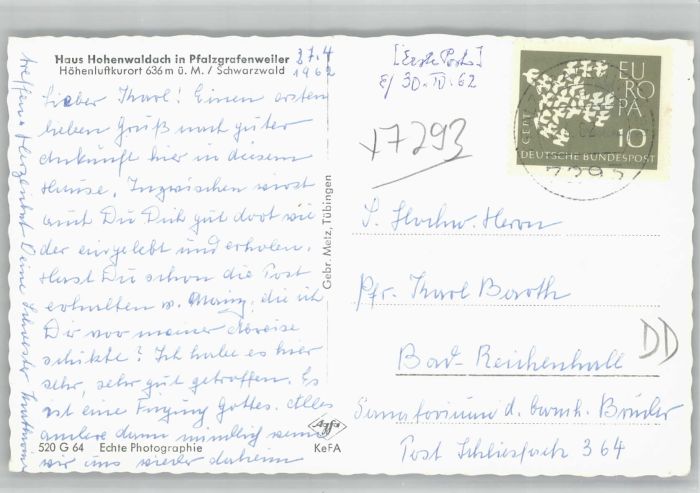 Haus Hohenwaldach in Pfalzgrafenweiler
Höhenluftkurort 636 m ü. M. / Schwarzwald
27.4
1962
Lieber Karl! Einen ersten
lieben Gruß nach guter
Ankunft hier in diesem
Hause. Inzwischen wirst
auch Du Dich gut dort wie
der eingelebt und erholen.
Hast Du schon die Post
erhalten v. Mainz, die ich
Dir vor meiner Abreise
schikte? Ich habe es hier
sehr, sehr gut getroffen. Es
ist eine Fügung Gottes. Alles
andere dann mündlich wenn
wir uns wieder daheim
treffen. Herzlichst Deine Schwester
520 G 64 Echte Photographie
Agfa
KeFA
Gebr. Metz, Tübingen
[Erste Post]
E/ 30.IV.62
+7293
EUROPA
CEPT
10
DEUTSCHE BUNDESPOST
S. Hochw. Herrn
Pfr. Karl Barth
Bad-Reichenhall
DD
Sanatorium d. barmh. Brüder
Post Schliesfach 364